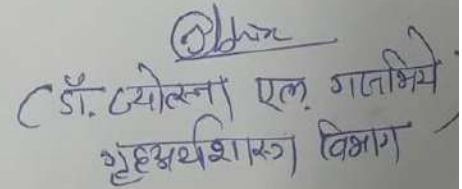 (डॉ. ज्योत्स्ना एल. गजभिये)
गृहअर्थशास्त्र विभाग